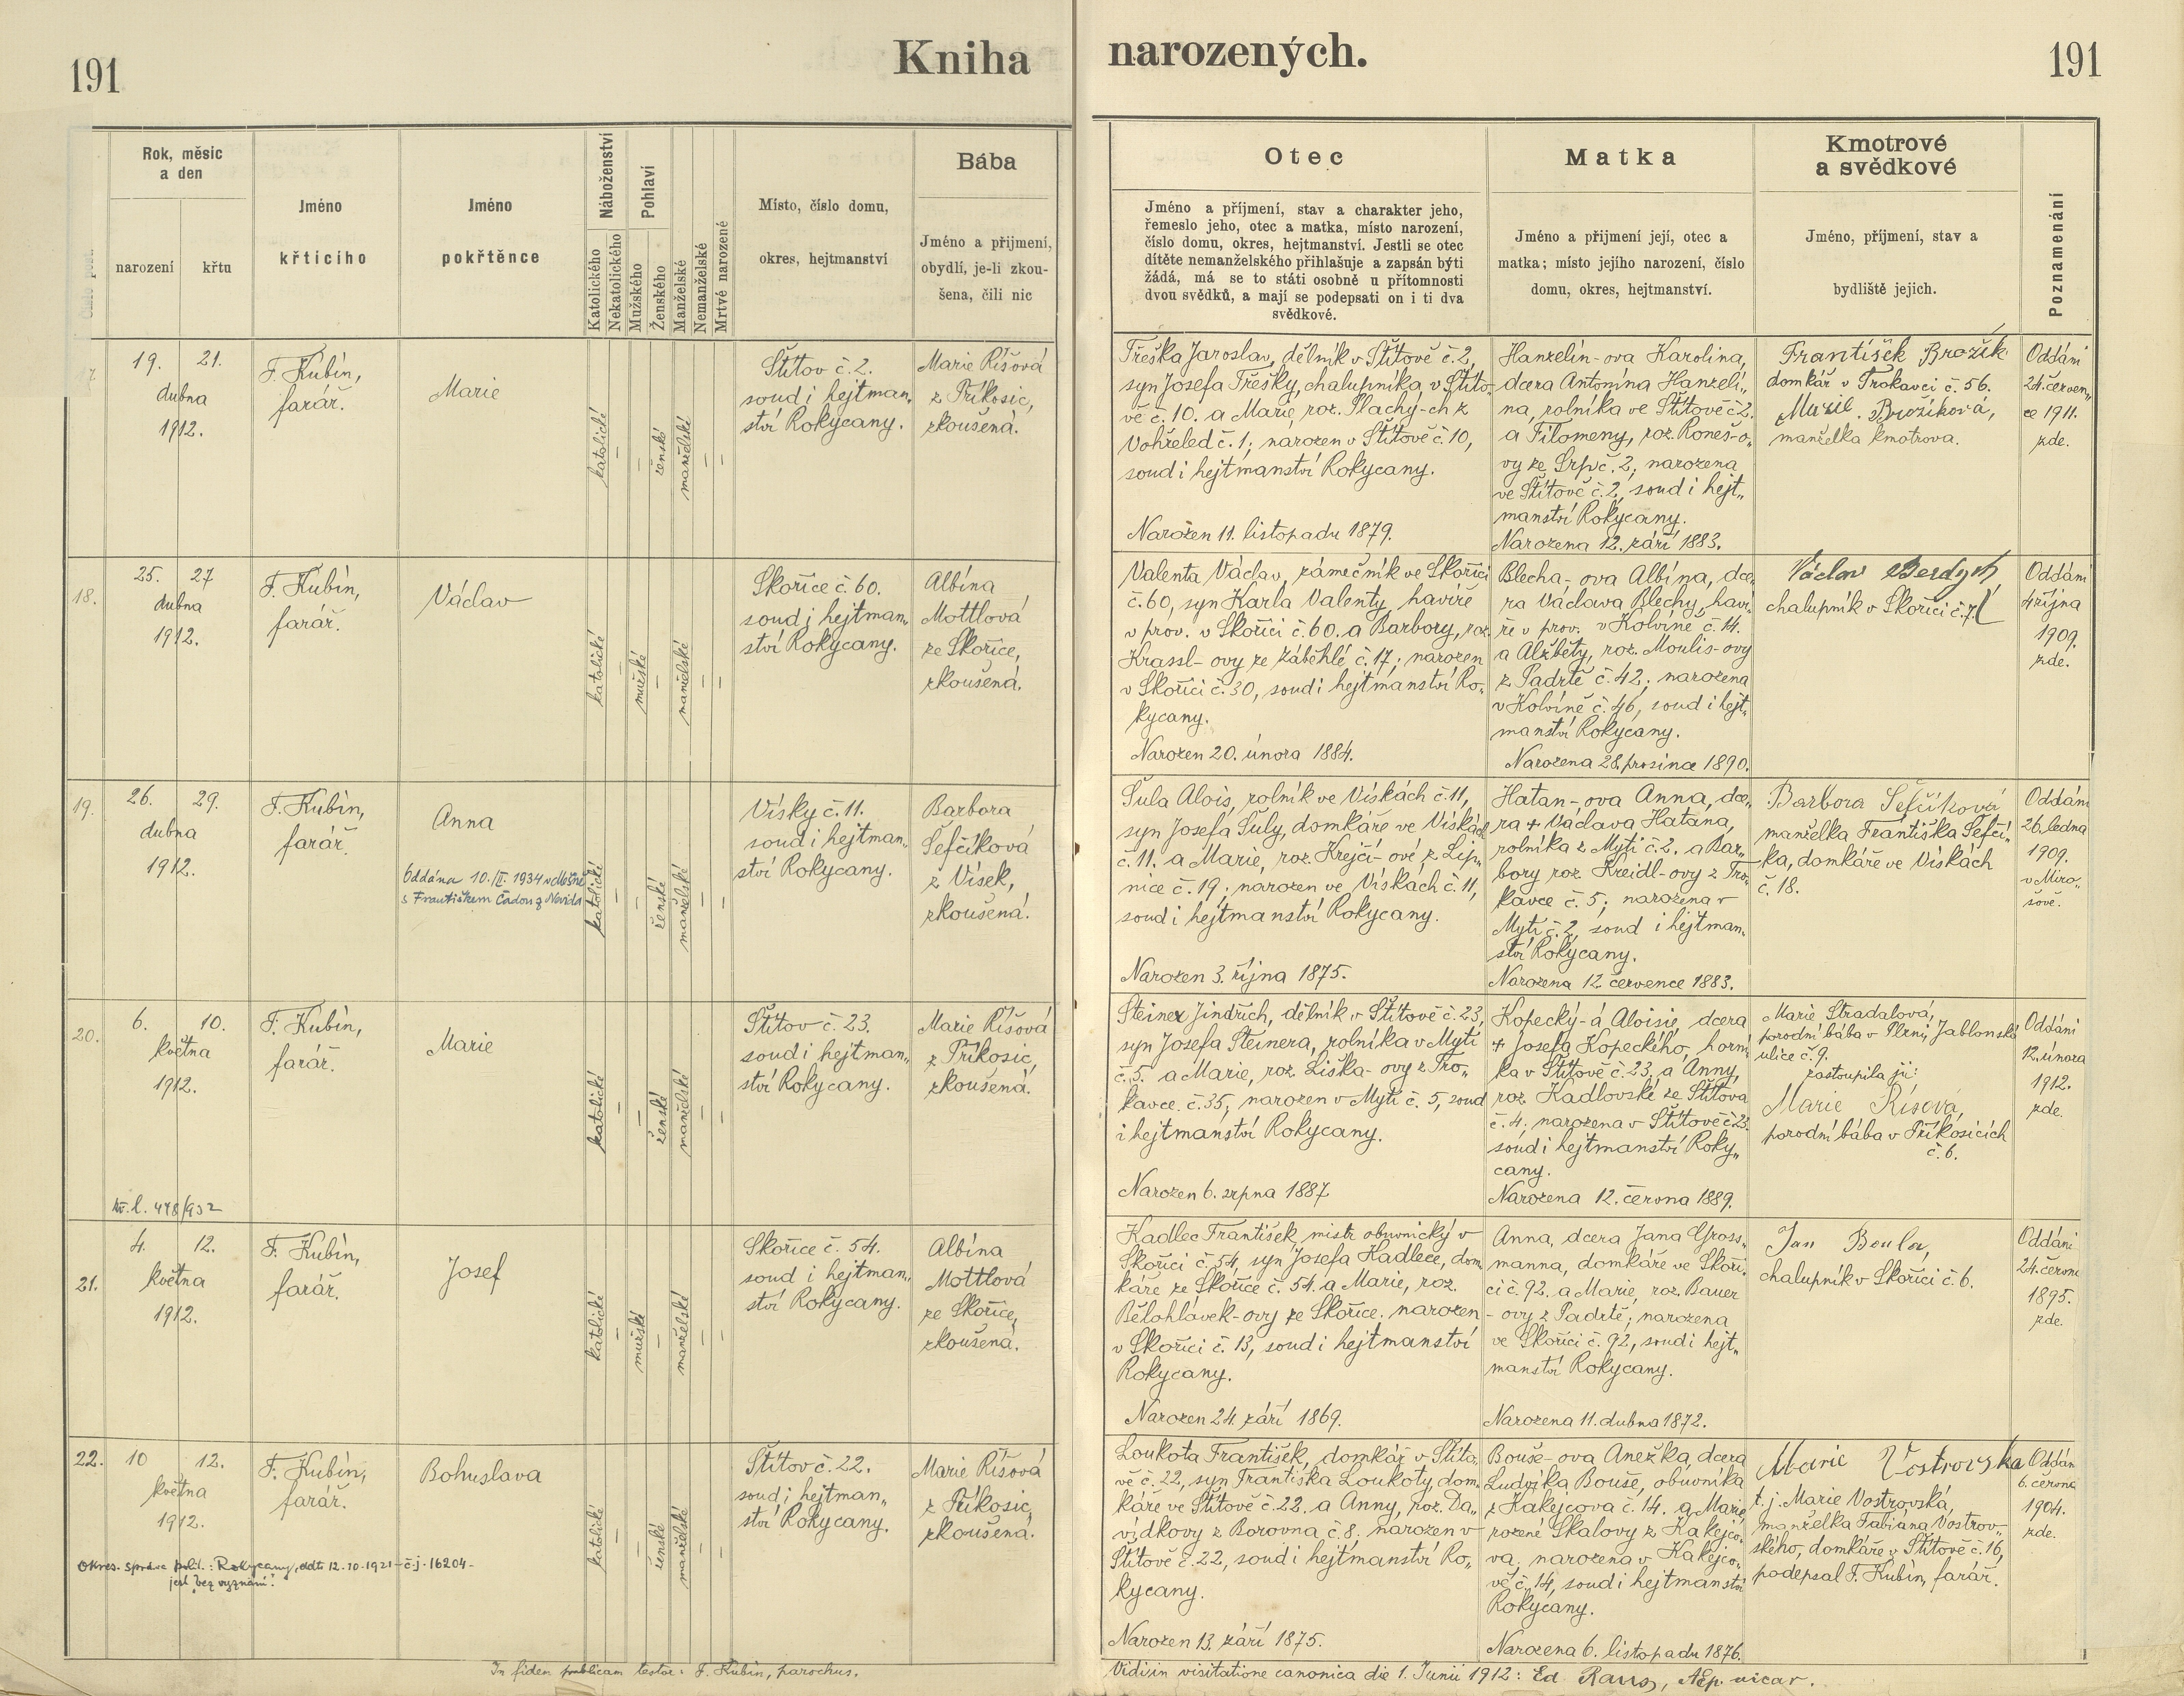 191
Kniha
narozených.
191
Rok, měsíc
a den
narození
křtu
Jméno
křticího
Jméno
pokřtěnce
Náboženství
Katolického
Nekatolického
Pohlaví
Mužského
Ženského
Manželské
Nemanželské
Mrtvě narozené
Místo, číslo domu,
okres, hejtmanství
Bába
Jméno a přijmení,
obydlí, je-li zkou-
šena, čili nic
Otec
Jméno a příjmení, stav a charakter jeho,
řemeslo jeho, otec a matka, místo narození,
číslo domu, okres, hejtmanství. Jestli se otec
dítěte nemanželského přihlašuje a zapsán býti
žádá, má se to státi osobně u přítomnosti
dvou svědků, a mají se podepsati on i ti dva
svědkové.
Matka
Jméno a přijmení její, otec a
matka; místo jejího narození, číslo
domu, okres, hejtmanství.
Kmotrové
a svědkové
Jméno, příjmení, stav a
bydliště jejich.
Poznamenání
19. 21.
dubna
1912.
F. Kubín,
farář.
Marie
katolické
ženské
manželské
Štítov č. 2.
soud i hejtman„
ství Rokycany.
Marie Říšová
z Příkosic,
zkoušená.
Třeška Jaroslav, dělník v Štítově č. 2,
syn Josefa Třešky, chalupníka v Štíto„
vě č. 10. a Marie, roz. Plachý-ch z
Vohřeled č. 1; narozen v Štítově č. 10,
soud i hejtmanství Rokycany.
Narozen 11. listopadu 1879.
Hanzelín-ova Karolina,
dcera Antonína Hanzelí„
na, rolníka ve Štítově č. 2.
a Filomeny, roz. Roneš-o„
vy ze Srpč. 2; narozena
ve Štítově č. 2, soud i hejt„
manství Rokycany.
Narozena 12. září 1883.
František Brožík
domkář v Trokavci č. 56.
Brožíková,
manželka kmotrova.
Oddáni
24. červen„
ce 1911.
zde.
18.
25. 27
dubna
1912.
F. Kubín,
farář.
Václav
katolické
mužské
manželské
Skořice č. 60.
soud i hejtman„
ství Rokycany.
Albína
Mottlová
ze Skořice,
zkoušená.
Valenta Václav, zámečník ve Skořici
č. 60, syn Karla Valenty, havíře
v prov. v Skořici č. 60. a Barbory, roz.
Krassl-ovy ze Záběhlé č. 17; narozen
v Skořici č. 30, soud i hejtmanství Ro„
kycany.
Narozen 20. února 1884.
Blecha-ova Albína, dce„
ra Václava Blechy, haví„
ře v prov. v Kolvíně č. 14.
a Alžběty, roz. Moulis-ovy
z Padrtě č. 42; narozena
v Kolvíně č. 46, soud i hejt„
manství Rokycany.
Narozena 28. prosince 1890.
Václav Berdych,
chalupník v Skořici č. 7.
Oddáni
4 října
1909.
zde.
19.
26. 29.
dubna
1912.
F. Kubín,
farář.
Anna
Oddána 10./II. 1934
s Františkem Čadou z
katolické
ženské
manželské
Vísky č. 11.
soud i hejtman„
ství Rokycany.
Barbora
Šefčíková
z Vísek,
zkoušená.
Šula Alois, rolník ve Vískách č. 11,
syn Josefa Šuly, domkáře ve Vískách
č. 11. a Marie, roz. Krejčí-ové z Lip„
nice č. 19; narozen ve Vískách č. 11,
soud i hejtmanství Rokycany.
Narozen 3. října 1875.
Hatan-ova Anna, dce„
ra + Václava Hatana,
rolníka z Mytí č. 2. a Bar„
bory roz. Kreidl-ovy z Tro„
kavce č. 5; narozena v
Mytí č. 2, soud i hejtman„
ství Rokycany.
Narozena 12 července 1883.
Barbora Šefčíková
manželka Františka Šefčí„
ka, domkáře ve Vískách
č. 18.
Oddáni
26. ledna
1909.
v Miro„
šově.
20.
6. 10.
května
1912.
F. Kubín,
farář.
Marie
katolické
ženské
manželské
Štítov č. 23.
soud i hejtman„
ství Rokycany.
Marie Říšová
z Příkosic,
zkoušená.
Steiner Jindřich, dělník v Štítově č. 23,
syn Josefa Steinera, rolníka v Mytí
č. 5. a Marie, roz. Liška-ovy z Tro„
kavce č. 35; narozen v Mytí č. 5, soud
i hejtmanství Rokycany.
Narozen 6. srpna 1887
Kopecký-á Aloisie, dcera
+ Josefa Kopeckého, horní
ka v Štítově č. 23, a Anny,
roz. Kadlovské ze Štítova
č. 4; narozena v Štítově č. 23.
soud i hejtmanství Roky„
cany.
Narozena 12. června 1889.
Marie Stradalová,
porodní bába v Plzni, Jablonská
ulice č. 9.
zastoupila ji:
Marie Říšová,
porodní bába v Příkosicích
č. 6.
Oddáni
12. února
1912.
zde.
kř. l. 478/932
21.
4. 12.
května
1912.
F. Kubín,
farář.
Josef
katolické
mužské
manželské
Skořice č. 54.
soud i hejtman„
ství Rokycany.
Albína
Mottlová
ze Skořice,
zkoušená.
Kadlec František, mistr obuvnický v
Skořici č. 54, syn Josefa Kadlece, dom„
káře ze Skořice č. 54. a Marie, roz.
Bělohlávek-ovy ze Skořice. narozen
v Skořici č. 13, soud i hejtmanství
Rokycany.
Narozen 24. září 1869.
Anna, dcera Jana Gross„
manna, domkáře ve Skoři„
ci č. 92. a Marie, roz. Bauer
-ovy z Padrtě; narozena
ve Skořici č. 92, soud i hejt„
manství Rokycany.
Narozena 11. dubna 1872.
Jan
chalupník v Skořici č. 6.
Oddáni
24. června
1895.
zde.
22.
10 12.
května
1912.
Okres. správa polit.: Rokycany, ddto 12.10.1921 - č.j. 16204 -
jest „bez vyznání".
F. Kubín,
farář.
Bohuslava
katolické
ženské
manželské
Štítov č. 22.
soud i hejtman„
ství Rokycany.
Marie Říšová
z Příkosic,
zkoušená.
Loukota František, domkář v Štíto„
vě č. 22, syn Františka Loukoty, dom„
káře ve Štítově č. 22. a Anny, roz. Da„
vídkovy z Borovna č. 8. narozen v
Štítově č. 22, soud i hejtmanství Ro„
kycany.
Narozen 13. září 1875.
Bouše-ova Anežka, dcera
Ludvíka Bouše, obuvníka
z Kakejcova č. 14. a Marie,
rozené Skalovy z Kakejco„
va; narozena v Kakejco„
vě č. 14, soud i hejtmanství
Rokycany.
Narozena 6. listopadu 1876.
Marie Vostrovska
t. j. Marie Vostrovská,
manželka Fabiána Vostrov„
ského, domkáře v Štítově č. 16,
podepsal F. Kubín, farář.
Oddáni
6. června
1904.
zde.
In fidem publicam testor: F. Kubín, parochus.
Vidi in visitatione canonica die 1. Junii 1912: Ed. Raus, vicar.